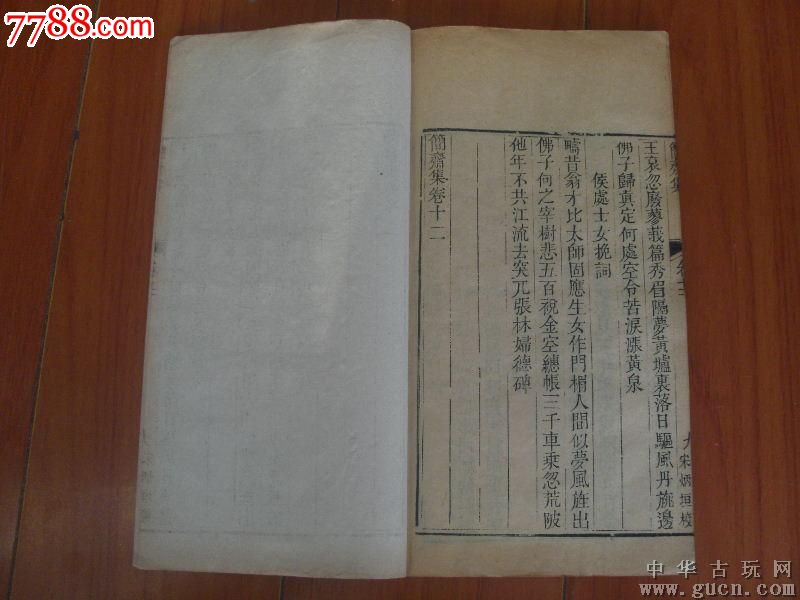 7788.com
簡齋集
卷十二
九
宋炳垣校
王哀忽廢蓼莪篇秀眉隔夢黃壚裏落日驅風丹旐邊
佛子歸真定何處空令苦淚漲黃泉
侯處士女挽詞
疇昔翁才比太師固應生女作門楣人間似夢風旌出
佛子何之宰樹悲五百祝金空繐帳三千車乗忽荒陂
他年不共江流去突兀張林婦德碑
簡齋集卷十二
中华古玩网
www.gucn.com